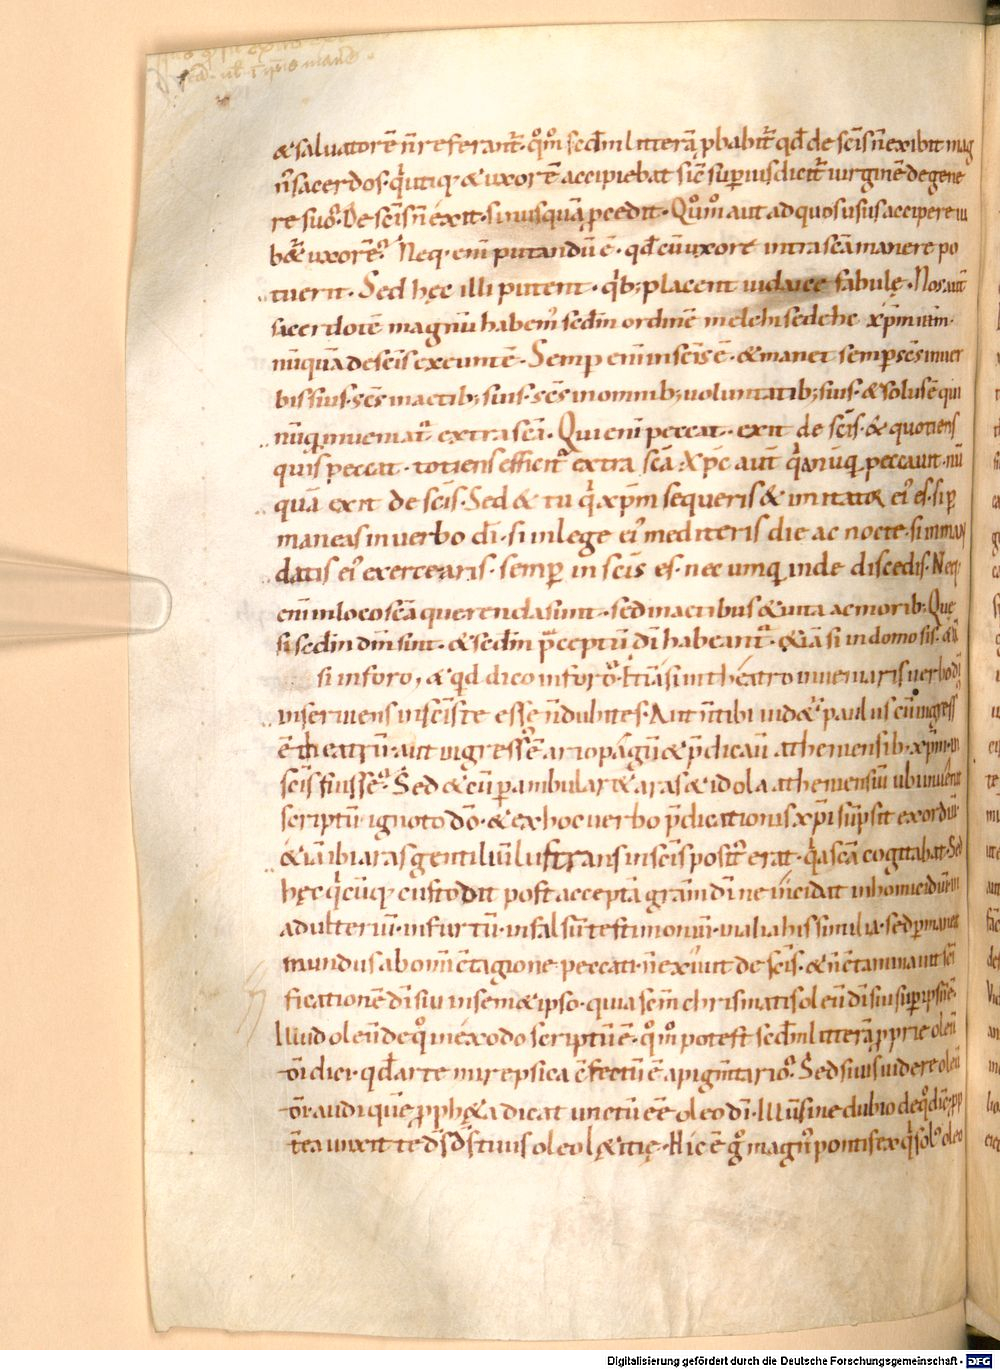 &saluatorē n̄ referant᷑. qm̄ō scdm̄ litterā p̱babit᷑ qđ de scīs n̄ exibit mag
n̄ sacerdos. q̇ utiq; & uxorē accipiebat sic̄ sup̱ius dicit᷑ uirginē de gene
re suo. De scīs n̄ exit. si nusquā p̱cedit. Qm̄ō aut ad quos usus accipere iu
b&᷑ uxorē. Neq. enī putandū ē. qđ cū uxore intra scā manere po
tuerit. Sed hęc illi putent. qb; placent iudaicę fabulę. Nos aut̄
sacerdotē magnū habem᷒ scdm̄ ordinē melchisedehc xp̄m ih̄m.
nūquā de scīs exeuntē. Semp enī in scīs ē. & manet semp̱ scs̄ in uer
bis suis. scs̄ in actib; suis. scs̄ in omnib; uoluntatib; suis. & solus ē qui
nūq inueniat᷑ extra scā. Qui enī peccat. exit de scīs. & quotiens
quis peccat. totiens efficit᷑ extra scā. Xp̄c aut̄ q̇a nūq peccauit. nū
quā exit de scīs. Sed & tu q̇ xp̄m sequeris & imitator ei᷒ es. si p̱
maneas in uerbo dī. si in lege ei᷒ mediteris die ac nocte. si in man
datis ei᷒ exercearis. semp̱ in scīs es. nec umq inde discedis. Neq.
enī in loco scā querenda sunt. sed in actibus & uita ac morib; Quę
si scdm̄ dm̄ sint. & scdm̄ p̄ceptū dī habeant᷑. &iā si in domo sis. &iā
si in foro, & qđ dico in foro. &iā si in theatro inueniaris uerbo dī
inseruiens in scīs te esse n̄ dubites. Aut n̄ tibi uid&᷑ paulus cū ingress᷒
ē theatrū. aut ingress᷒ ē ariopagū & p̄dicauit atheniensib; xp̄m. in
scīs fuisse. Sed & cū p̱ambular& aras & idola atheniensiū ubi inuenit
scriptū ignoto dō. & ex hoc uerbo p̄dicationis xp̄i sūpsit exordiū.
&iā ibi aras gentiliū lustrans in scīs posit᷒ erat. q̇a scā cogitabat. Sed
hęc q̇cūq; custodit post acceptā grām dī ne incidat in homicidiū. in
adulteriū. in furtū. in falsū testimoniū. in alia his similia. sed p̱manet
mundus ab om̄i c̄tagione peccati. n̄ exiuit de scīs. & n̄ c̄taminauit scī
ficationē dī sui in sem&ipso. quia scm̄ chrismatis oleū dī sui sup̱ ipsū ē.
Illud oleū de quo in exodo scriptū ē. qm̄ō potest scdm̄ litterā p̱prie oleū
dī dici. qđ arte mirepsica c̄fectū ē a pigmtario. Sed si uis uidere oleū
dī. audi quē p̱ph&a dicat unctū ēē oleo dī. Illū sine dubio de quo dic̄. p̱p
terea unxit te ds̄ ds̄ tuus oleo l&itię. Hic ē g᷒ magn᷒ pontifex q̇ sol᷒ oleo
Digitalisierung gefördert durch die Deutsche Forschungsgemeinschaft - DFG